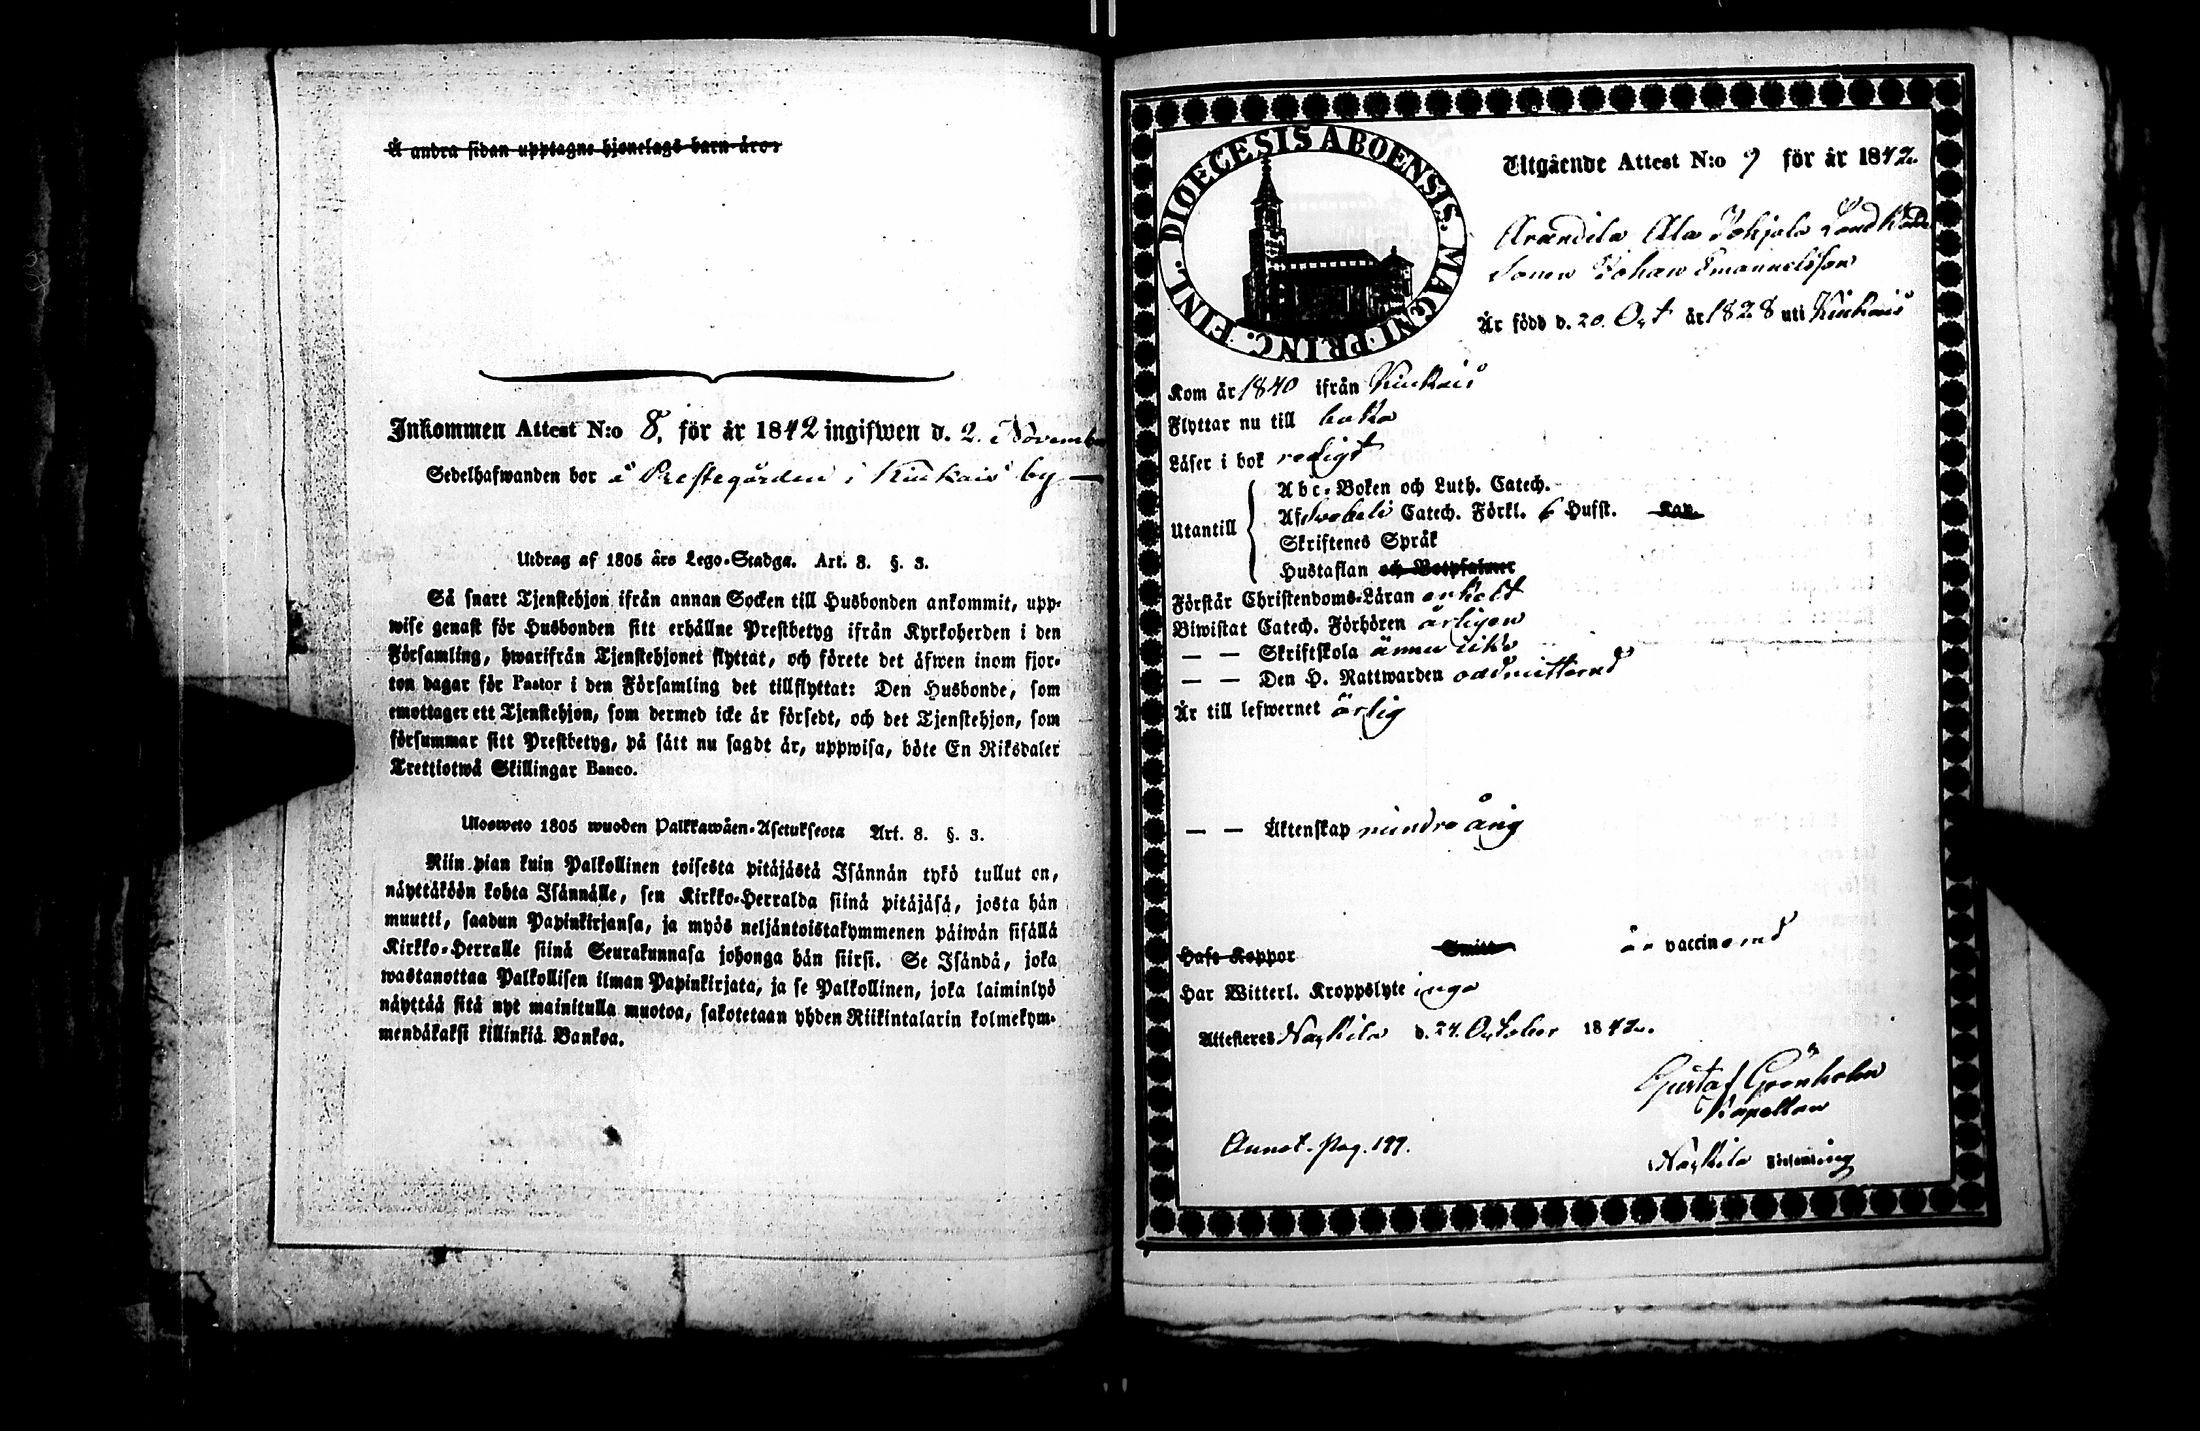 Å andra sidan upptagne hjonelags barn äro:
Inkommen Attest N:o 8. för år 1842 ingifwen d. 2. November
Sedelhafwanden bor å Prestegården i Kiukais by —
Utdrag af 1805 års Lego-Stadga. Art. 8. §. 3.
Så snart Tjenstehjon ifrån annan Socken till Husbonden ankommit, upp-
wise genast för Husbonden sitt erhållne Prestbetyg ifrån Kyrkoherden i den
Församling, hwarifrån Tjenstehjonet flyttat, och förete det äfwen inom fjor-
ton dagar för Pastor i den Församling det tillflyttat: Den Husbonde, som
emottager ett Tjenstehjon, som dermed icke är försedt, och det Tjenstehjon, som
försummar sitt Prestbetyg, på sätt nu sagdt är, uppwisa, böte En Riksdaler
Trettiotwå Skillingar Banco.
Ulosweto 1805 wuoden Palkkawäen-Asetuksesta Art. 8. §. 3.
Niin pian kuin Palkollinen toisesta pitäjästä Isännän tykö tullut on,
näyttäköön kohta Isännälle, sen Kirkko-Herralda siinä pitäjäsä, josta hän
muutti, saadun Papinkirjansa, ja myös neljäntoistakymmenen päiwän sisällä
Kirkko-Herralle siinä Seurakunnasa johonga hän siirsi. Se Isändä, joka
wastanottaa Palkollisen ilman Papinkirjata, ja se Palkollinen, joka laiminlyö
näyttää sitä nyt mainitulla muotoa, sakotetaan yhden Riikintalarin kolmekym-
mendäkaksi killinkiä Bankoa.
DIOECESIS ABOENSIS. MAGNI PRINC. FINL.
Utgående Attest N:o 9 för år 1842.
Ala Pohjala
Sonen Johan Emanuelsson
Är född d. 20. Oct år 1828 uti Kiukais
Kom år 1840 ifrån Kiukais
Flyttar nu till baka
Läser i bok redigt
Utantill
Abc-Boken och Luth. Catech.
Af Swebelii Catech. Förkl. 6 Hufst. Kap.
Skriftenes Språk
Hustaflan och Botpsalmer
Förstår Christendoms-Läran enkelt
Biwistat Catech. Förhören årligen
— — Skriftskola ännu icke
— — Den H. Nattwarden oadmitterad
Är till lefwernet ärlig
— — Äktenskap minderårig
Haft Koppor Smitt är vaccinerad
Har Witterl. Kroppslyte inga
Attesteras Nackila d. 24. October 1842.
Gustaf Grönholm
Kapellan
Annot. pag. 197.
Nackila Församling